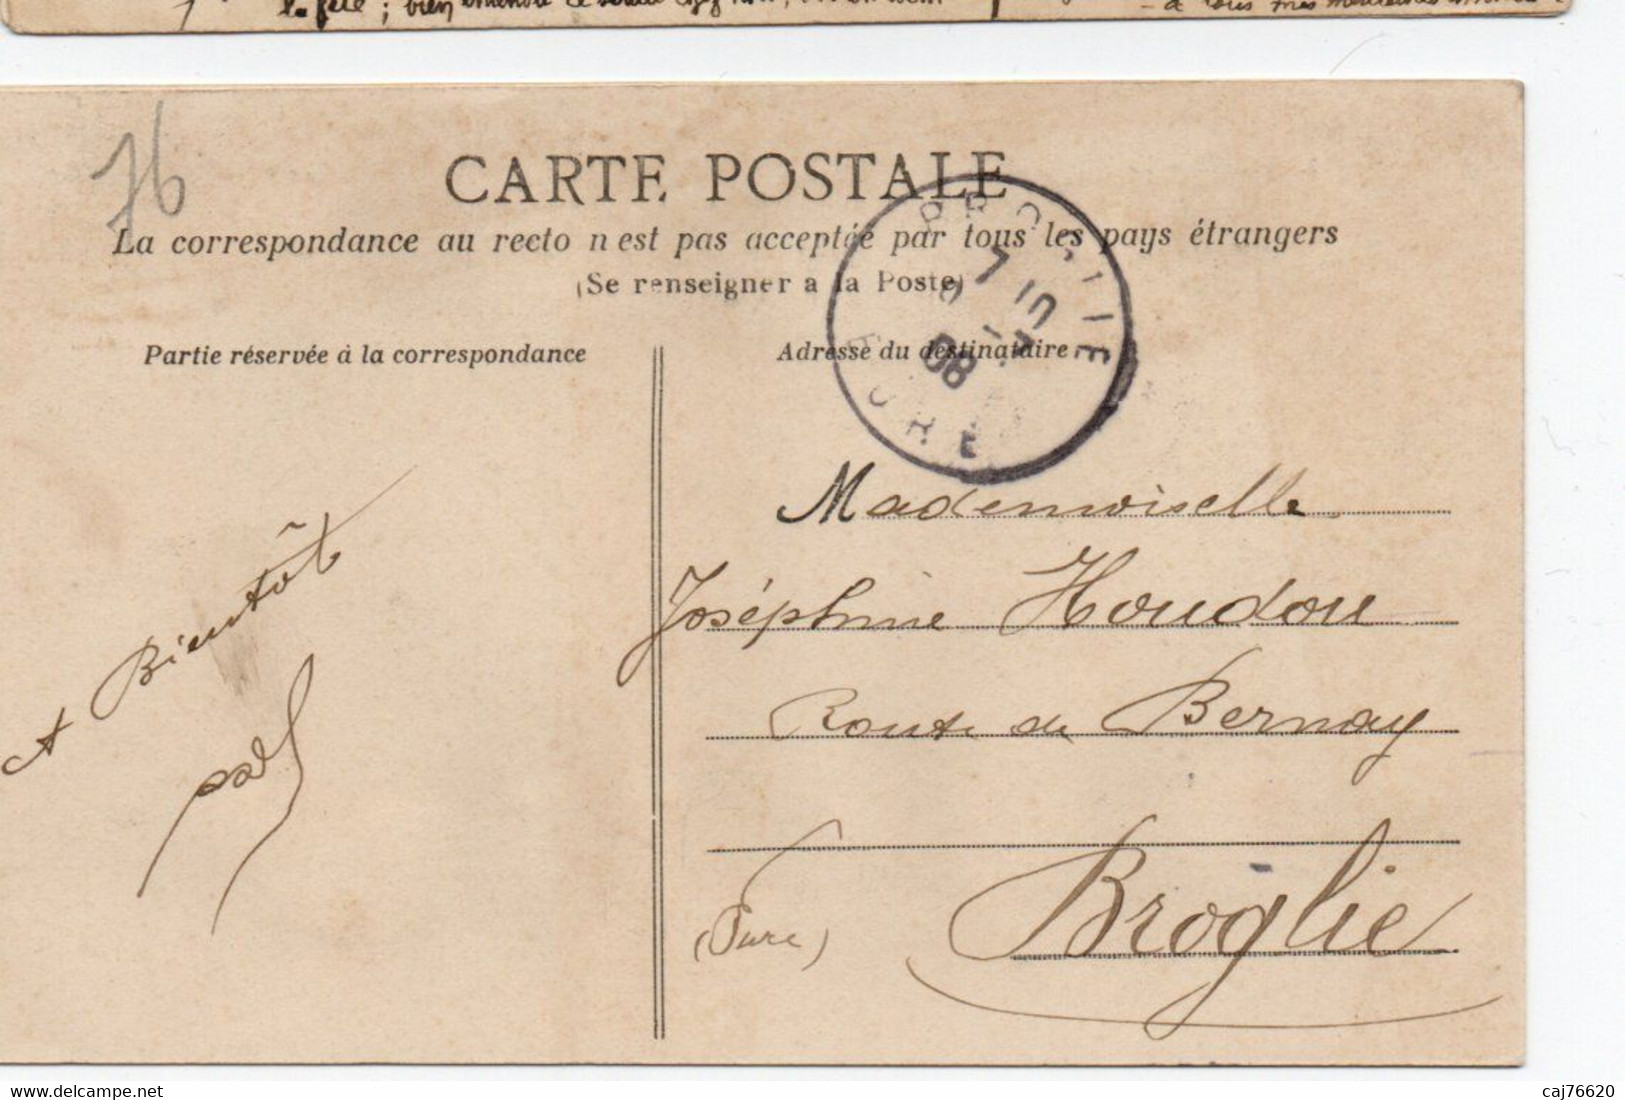 la fête ; bien
à tous mes meilleures
76
CARTE POSTALE
La correspondance au recto n est pas acceptée par tous les pays étrangers
(Se renseigner a la Poste)
Partie réservée à la correspondance
Adresse du destinataire
BROGLIE
EURE
08
Mademoiselle
Joséphine Houdou
Route de Bernay
Broglie
(Eure)
A Bientôt
www.delcampe.net
caj76620